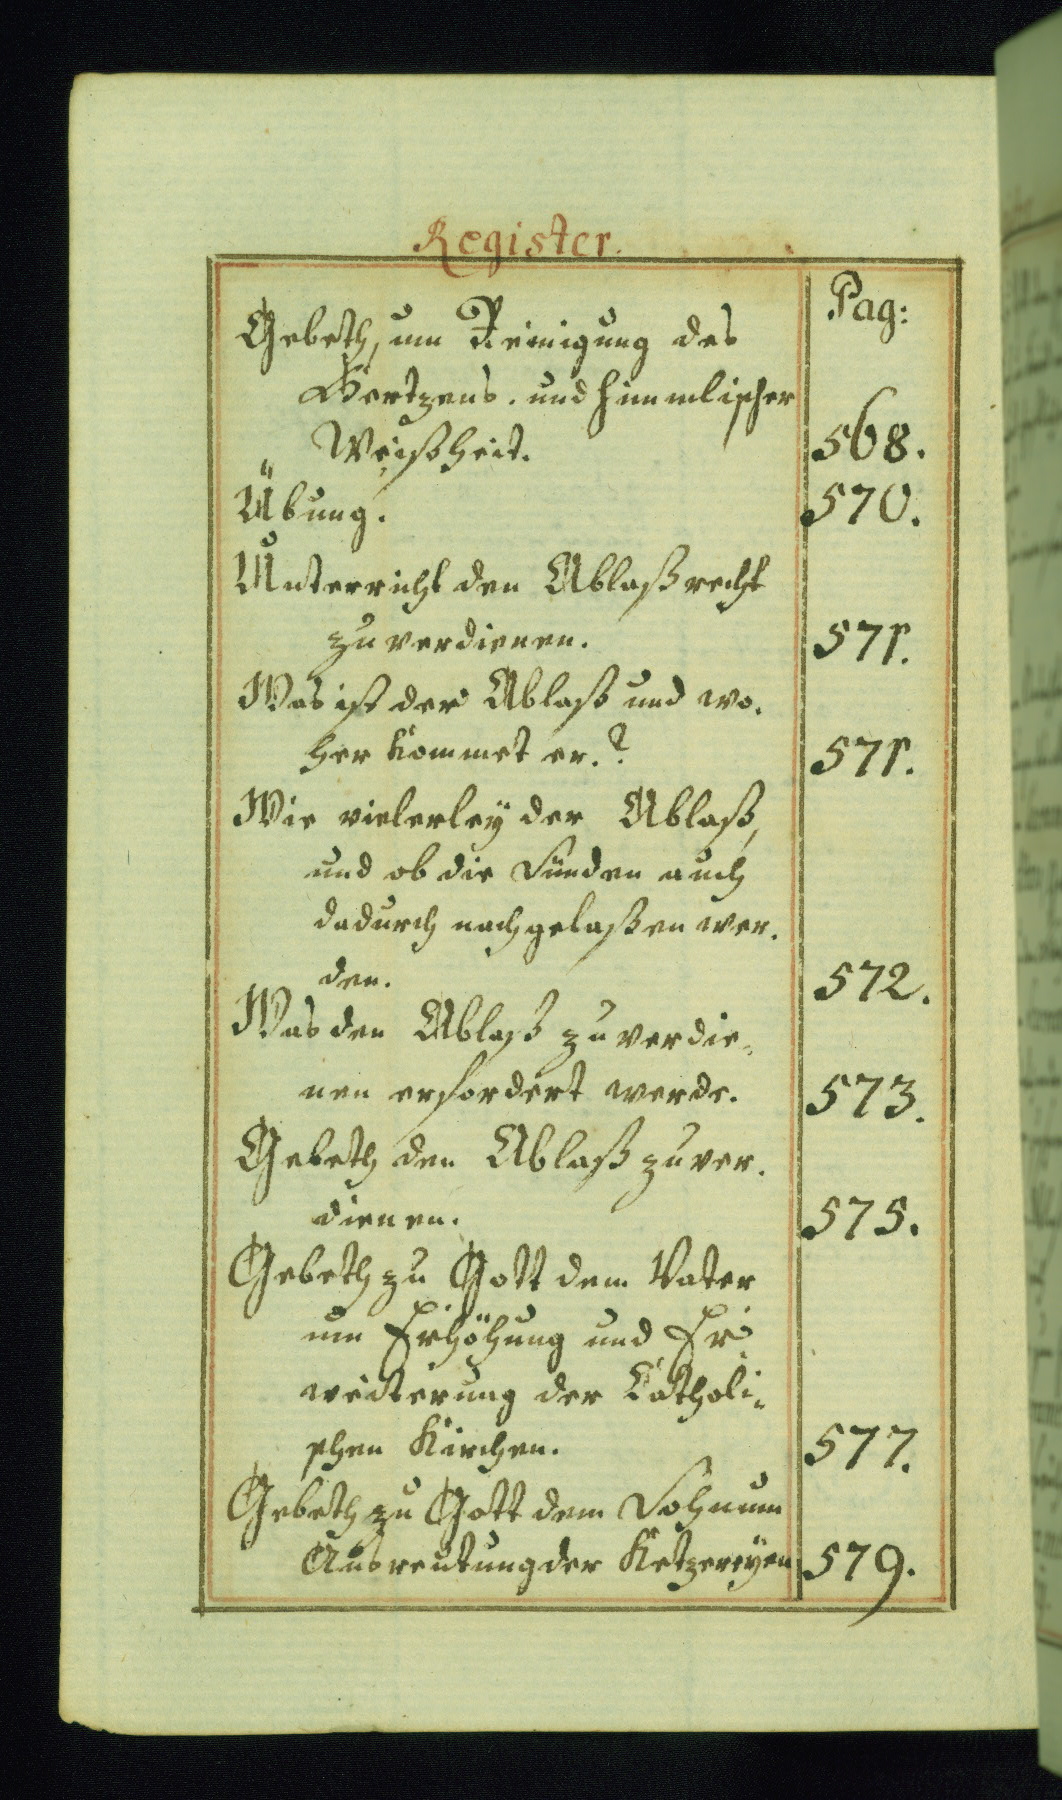 Register.
Pag:
Gebeth, um Reinigung des
Hertzens. und himmlischer
Weißheit. 568.
Übung. 570.
Unterricht den Ablaß recht
zu verdienen. 571.
Was ist der Ablaß und wo-
her kommet er.? 571.
Wie vielerley der Ablaß,
und ob die Sünden auch
dadurch nachgelaßen wer-
den. 572.
Was den Ablaß zu verdie-
nen erfordert werde. 573.
Gebeth den Ablaß zu ver-
dienen. 575.
Gebeth zu Gott dem Vater
um Erhöhung und Er-
weiterung der Catholi-
schen Kirchen. 577.
Gebeth zu Gott dem Sohn um
Ausreutung der Ketzereyen 579.